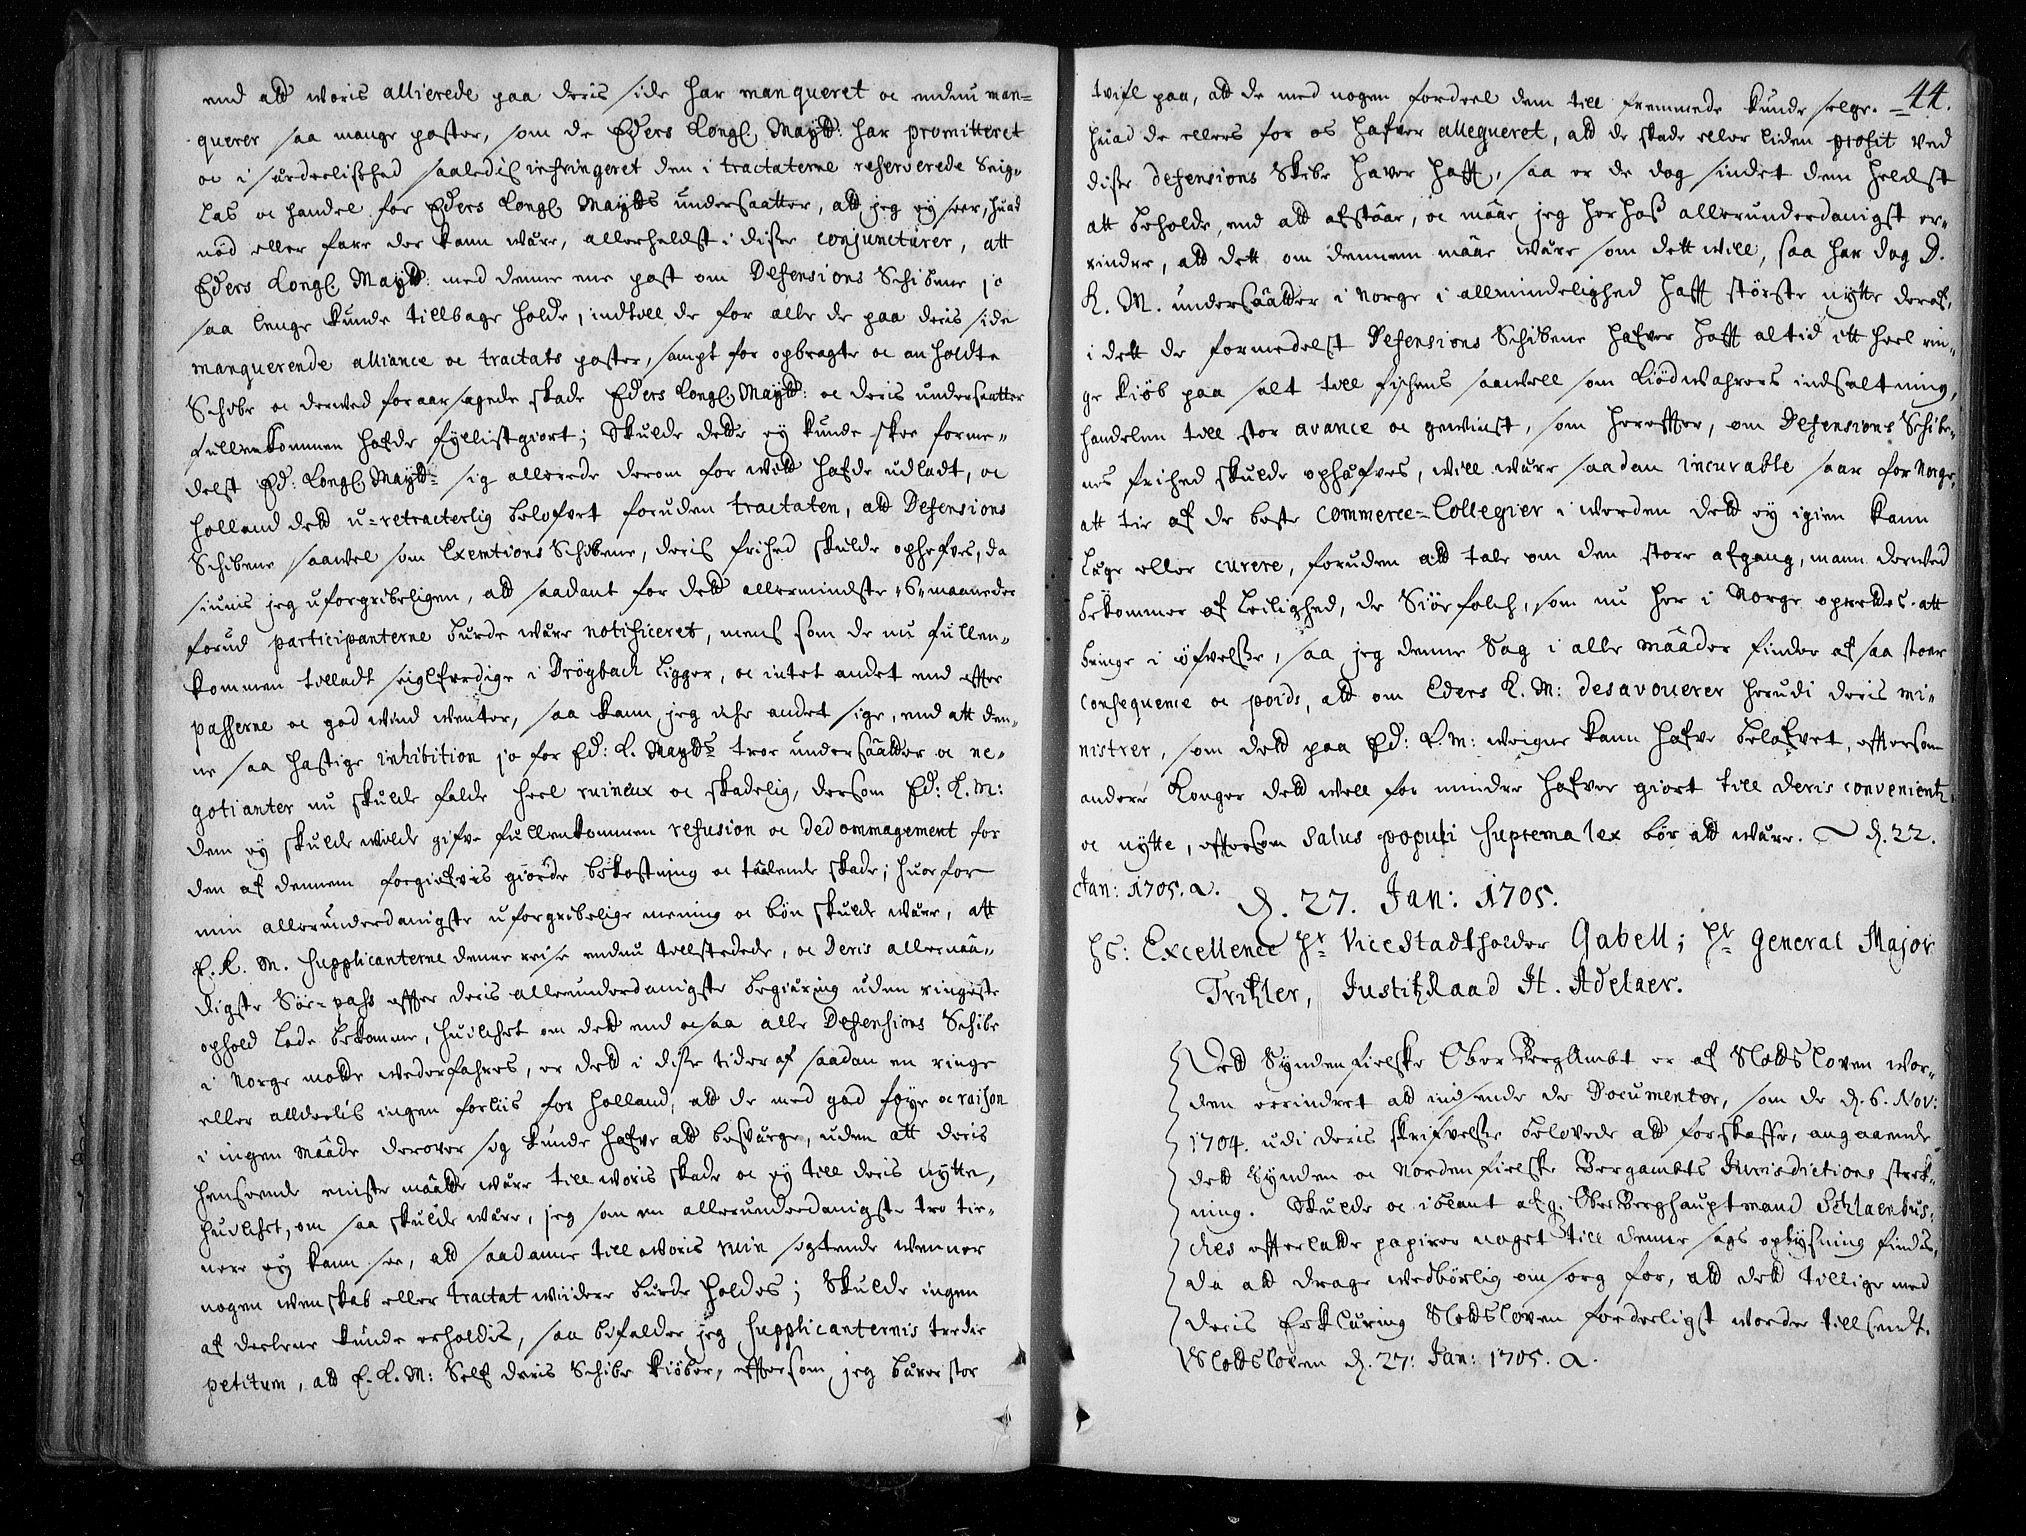 end att woris allierede paa deris side har manqueret oc endnu man=
querer saa mange poster, som de Eders Kongl. Maytt: har promitteret
oc i surdeelished saaledis infringeret den i tractaterne reserverede Seig-
las oc handel for Eders Kongl. Maytts undersaatter, att jeg ey seer, huad
nöd eller fare der kann wære, allerheldst i disse conjuncturer, att
Eders Kongl. Maytt: med denne ene post om Defensions Schibene jo
saa lenge kunde tillbage holde, indtill de for alle de paa deris side
manquerende alliance oc tractats poster, sampt for opbragte oc anholdte
Schibe oc derved foraarsagede skade Eders Kongl. Maytt: oc deris undersaatter
fullenkommen hafde fyllistgiort; Skulde dette ey kunde skee forme-
delst Ed: Kongl. Maytt= sig allerede derom for witt hafde udladt, oc
Holland dett u=retracterlig belofvet foruden tractaten, att Defensions
Schibene saawel som Exemtions Schibene, deris frihed skulde ophefves, da
siunis jeg uforgribeligen, att saadant for dett allermindste "6" maaneder
forud participanterne burde wære notificeret, mens som de nu fullen-
kommen tilladt seiglferdige i Dröyback ligger, oc intet andet end effter
passerne oc god wind wenter, saa kann jeg icke andet sige, end att den-
ne saa hastige inhibition jo for Ed: K. Maytts troe undersaatter oc ne-
gotianter nu skulde falde heel ruineux oc skadelig, dersom Ed: K. M:
dem ey skulde wilde gifve fullenkommen refusion oc dedommagement for
den af dennem forgiefvis giorde bekostning oc taalende skade; huorfor
min allerunderdanigste uforgribelige mening oc bön skulde wære, att
E. K. M. supplicanterne denne reise endnu tillstedede, oc Deris allernaa-
digste Söe=pass effter deris allerunderdanigste begiæring uden ringeste
ophold lade bekomme, huilchet om dett end ocsaa alle Defensions Schibe
i Norge motte wederfahres, er dett i disse tider af saadan en ringe
eller alldeelis ingen forliis for Holland, att de med god föye oc raison
i ingen maade derover sig kunde hafve att besværge, uden att deris
henseende eniste maatte wære till woris skade oc ey till deris nytte,
huilchet, om saa skulde wære, jeg som en allerunderdanigste tro tie-
nere ey kann see, att saadanne till woris ruin sögtende wenner
nogen wenskab eller tractat widere burde holdes; Skulde ingen
af deelene kunde erholdis, saa befalder jeg supplicanternis tredie
petitum, att E. K. M: Self deris Schibe kiöber, effterson jeg bærer stor
44.
tvifl paa, att de med nogen fordeel dem till fremmede kunde selge.
huad de ellers for os hafver allegueret, att de skade eller liden profit ved
disse Defensions Skibe haver hafft, saa er de dog sindet dem heldst
att beholde, end att afstaar, oc maae jeg herhoss allerunderdanigst er-
rindre, att dett om dennem maae wære som dett will, saa har dog D.
K. M. undersaatter i Norge i allmindelighed hafft störste nytte deraf,
i dett de formedelst Defensions Schibene hafver hafft altid ett heel rin-
ge kiöb paa salt till fischens saawell som Kiödwahrers indsaltning,
handelen till stor avance oc gewinst, som hereffter, om Defensions Schibe-
nes frihed skulde ophæfves, will wære saadan incurable saar for Norge,
att tie af de beste Commerce=Collegier i werden dett ey igien kann
læge eller curere, foruden att tale om den store afgang, mann derved
bekommer af leilighed, de Siöefolch, som nu her i Norge oprettes, att
bringe i öfvelse, saa jeg denne Sag i alle maader finder af saa stoer
consequence oc poids, att om Eders K. M: desavouerer herudi deris mi-
nistrer, som dett paa Ed: K. M: weigne kann hafve belofvet, effterson
andere Konger dett well for mindre hafver giort till deris convenientz
oc nytte, effterson salus populi suprema lex bör att wære. ~ d. 22.
Jan: 1705. a.
d. 27. Jan: 1705.
Hs: Excellence Hr ViceStadtholder Gabell; Hr General Major
Tritzler, JustitzRaad H. Adelaer.
Dett Syndenfielske Ober BergAmbt er af Slottsloven wor-
den errindret att indsende de Documenter, som de d. 6. Nov:
1704. udi deris skrifvelse belovede att forskaffe, angaaende
dett Synden oc Nordenfielske Bergambts Jurisdictions strek-
ning. Skulde oc iblant afg. Ober Berghauptmand Schlaenbus-
ches effterladte papirer noget till denne sags oplysning findes,
da att drage wedbörlig omsorg for, att dett tillige med
deris Erklæring Slottsloven forderligst worder tillsendt.
Slottsloven d. 27: Jan: 1705. a.